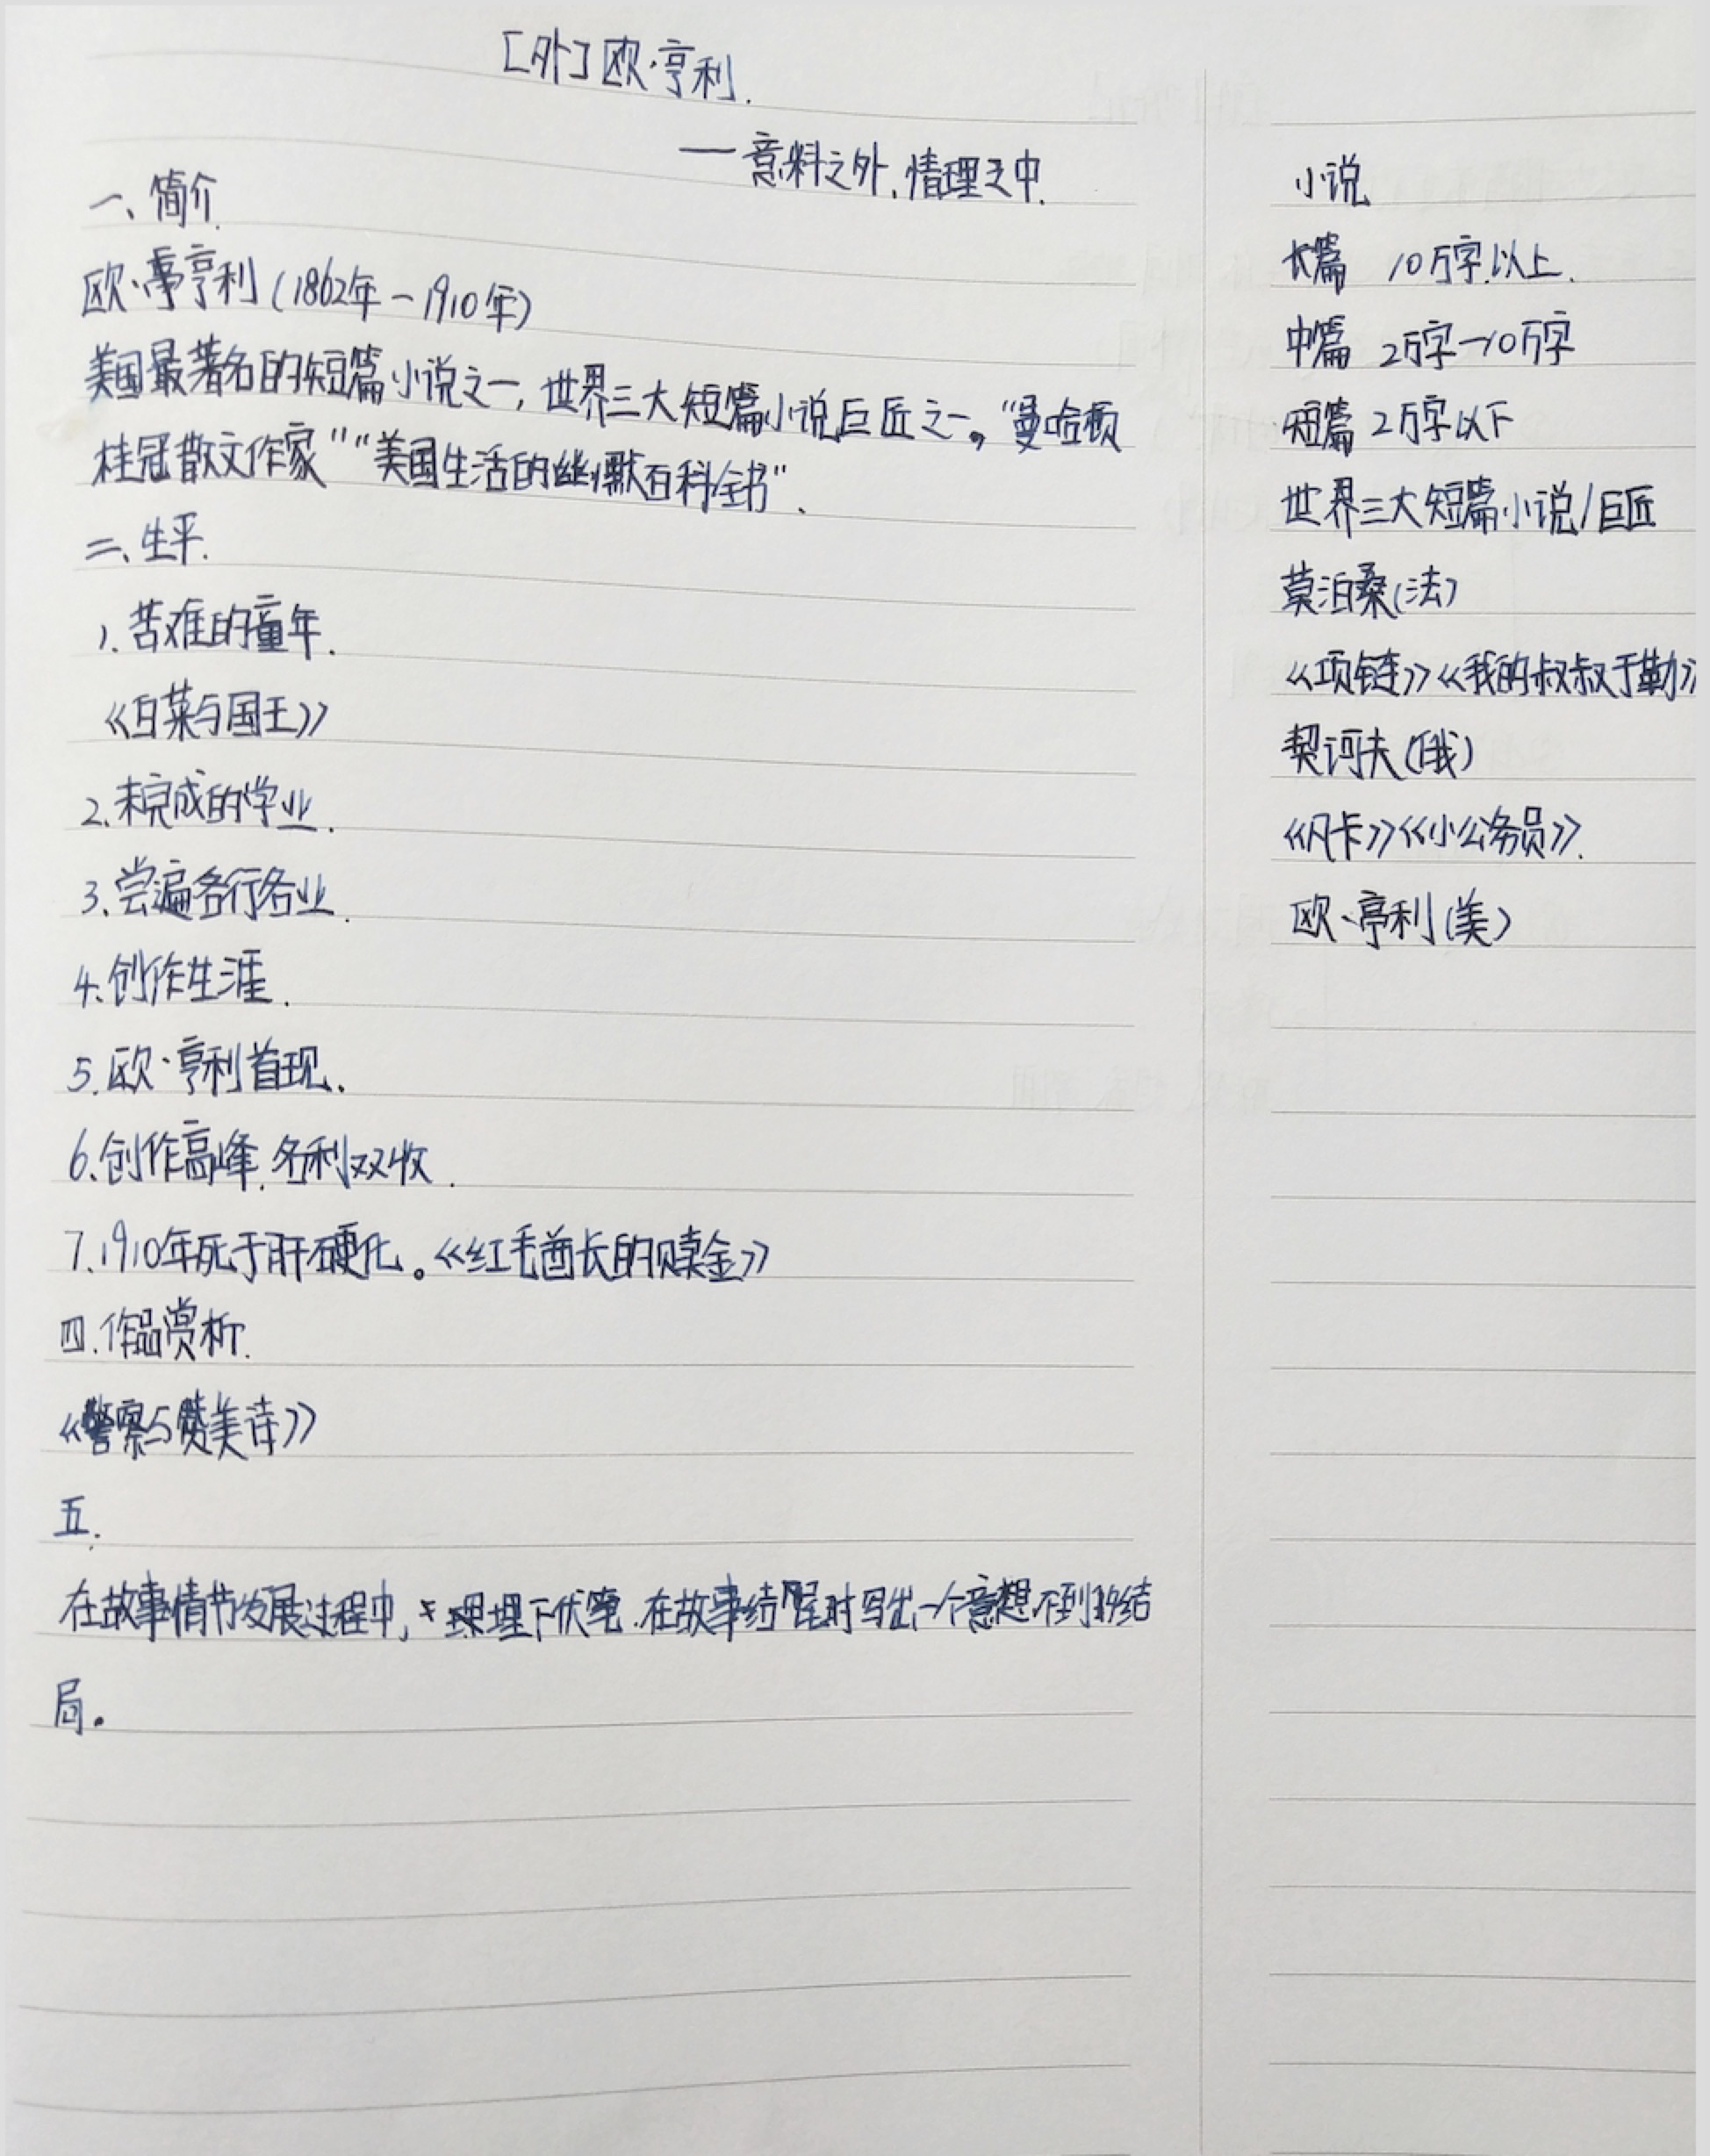 [外]欧·亨利.
——意料之外,情理之中.
一、简介.
欧·亨利(1862年—1910年)
美国最著名的短篇小说之一,世界三大短篇小说巨匠之一。"曼哈顿
桂冠散文作家""美国生活的幽默百科全书".
二、生平.
1.苦难的童年.
《白菜与国王》
2.未完成的学业.
3.尝遍各行各业.
4.创作生涯.
5.欧·亨利首现.
6.创作高峰,名利双收.
7.1910年死于肝硬化。《红毛酋长的赎金》
四.作品赏析.
《警察与赞美诗》
五.
在故事情节发展过程中,埋下伏笔.在故事结尾时写出一个意想不到的结
局。
小说
长篇 10万字以上.
中篇 2万字—10万字
短篇 2万字以下
世界三大短篇小说/巨匠
莫泊桑(法)
《项链》《我的叔叔于勒》
契诃夫(俄)
《凡卡》《小公务员》.
欧·亨利(美)